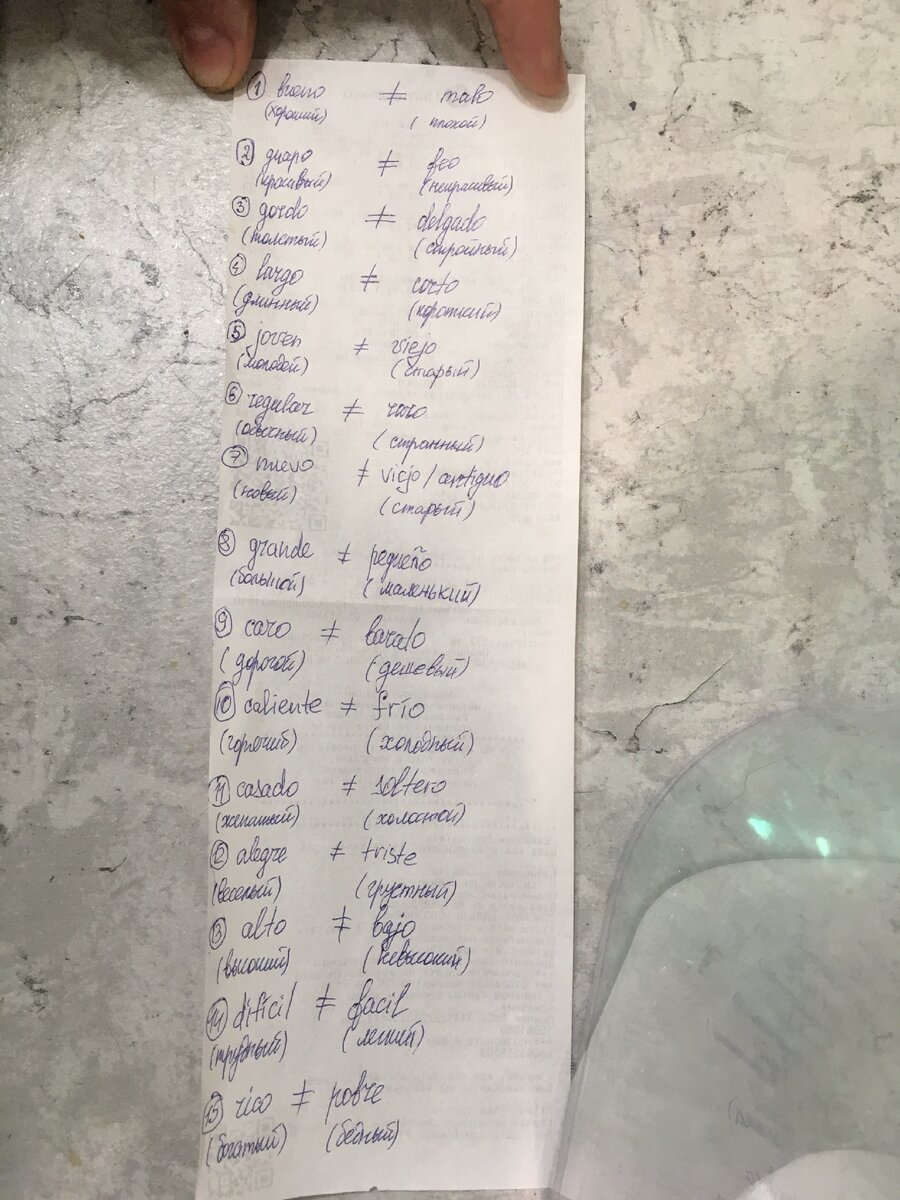 1 bueno ≠ malo
(хороший) (плохой)
2 guapo ≠ feo
(красивый) (некрасивый)
3 gordo ≠ delgado
(толстый) (стройный)
4 largo ≠ corto
(длинный) (короткий)
5 joven ≠ viejo
(молодой) (старый)
6 regular ≠ raro
(обычный) (странный)
7 nuevo ≠ viejo / antiguo
(новый) (старый)
8 grande ≠ pequeño
(большой) (маленький)
9 caro ≠ barato
(дорогой) (дешевый)
10 caliente ≠ frío
(горячий) (холодный)
11 casado ≠ soltero
(женатый) (холостой)
12 alegre ≠ triste
(веселый) (грустный)
13 alto ≠ bajo
(высокий) (невысокий)
14 difícil ≠ facil
(трудный) (легкий)
15 rico ≠ pobre
(богатый) (бедный)